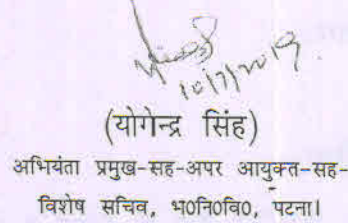 10/7/2019
(योगेन्द्र सिंह)
अभियंता प्रमुख-सह-अपर आयुक्त-सह-
विशेष सचिव, भ0नि0वि0, पटना।